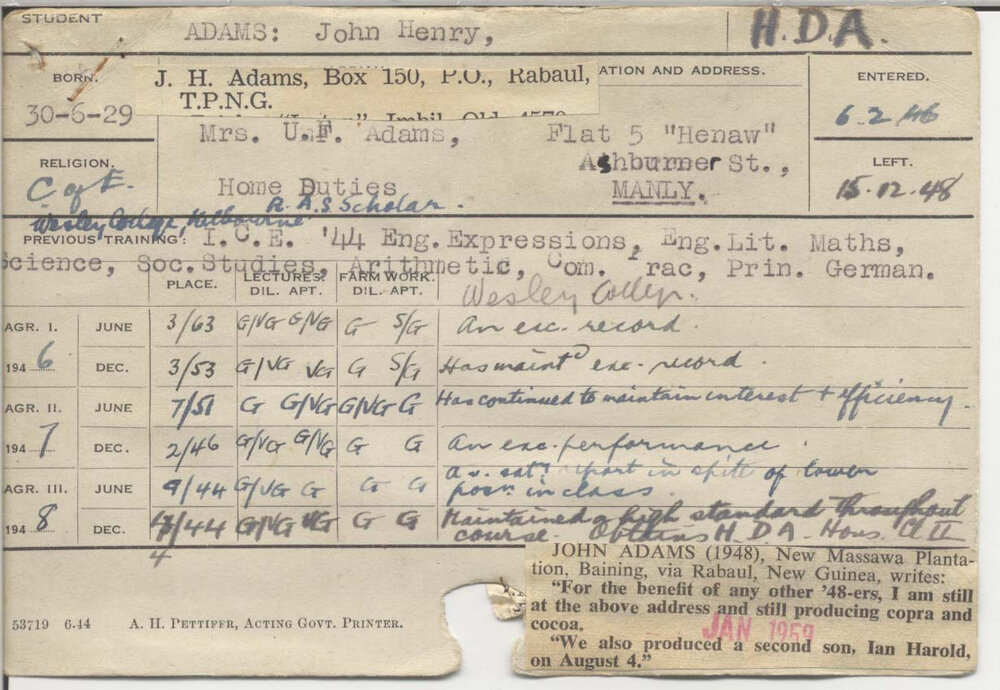 STUDENT
ADAMS: John Henry,
H.D.A.
BORN.
ATION AND ADDRESS.
ENTERED.
J. H. Adams, Box 150, P.O., Rabaul,
T.P.N.G.
30-6-29
6.2.46
Mrs. U.F. Adams,
Flat 5 "Henaw"
Ashburner St.,
MANLY.
RELIGION.
C of E.
LEFT.
15.12.48
Home Duties
R.A.S Scholar.
Wesley College, Melbourne
PREVIOUS TRAINING: I.C.E. '44 Eng.Expressions, Eng.Lit. Maths,
Science, Soc.Studies, Arithmetic, Com. Prac, Prin. German.
Wesley College.
PLACE.
LECTURES.
DIL. APT.
FARM WORK.
DIL. APT.
AGR. I. JUNE 3/63 G/VG G/VG G S/G An exc. record.
1946 DEC. 3/53 G/VG VG G S/G Has maintd exc. record.
AGR. II. JUNE 7/51 G G/VG G/VG G Has continued to maintain interest + efficiency.
1947 DEC. 2/46 G/VG G/VG G G An exc. performance.
AGR. III. JUNE 9/44 G/VG G G G A v. sat. report in spite of lower
posn in class.
1948 DEC. /44 G/VG VG G G Maintained a high standard throughout
course. Obtains H.D.A. Hons. Cl II
4
JOHN ADAMS (1948), New Massawa Planta-
tion, Baining, via Rabaul, New Guinea, writes:
"For the benefit of any other '48-ers, I am still
at the above address and still producing copra and
cocoa.
JAN 1959
"We also produced a second son, Ian Harold,
on August 4."
53719 6.44 A. H. PETTIFER, ACTING GOVT. PRINTER.